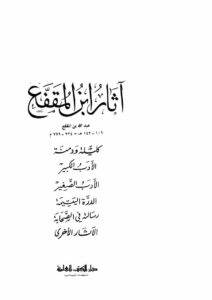 آثار ابن المقفع
عبد الله بن المقفع
١٠٦ - ١٤٢ هـ = ٧٢٤ - ٧٥٩ م
كليلة ودمنة
الأدب الكبير
الأدب الصغير
الدرة اليتيمة
رسالة في الصحابة
الآثار الأخرى
دار الكتب العلمية